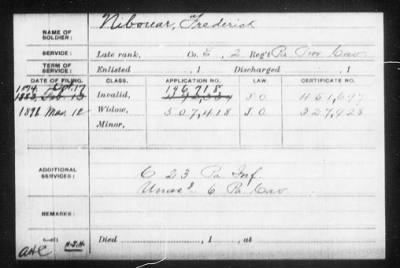 NAME OF SOLDIER: Nibouar, Frederick
SERVICE: Late rank, Co. E, 2 Reg't Pa. Prov. Cav.
TERM OF SERVICE: Enlisted , 1 Discharged , 1
DATE OF FILING. CLASS. APPLICATION NO. LAW. CERTIFICATE NO.
1874 Oct. 17 196,718
Invalid, S.O. 451,697
1891 Mar. 12 Widow, 507,418 S.O. 327,928
Minor,
ADDITIONAL SERVICES: C 23 Pa Inf.
Unas'd 6 Pa Cav
REMARKS:
Died , 1 , at